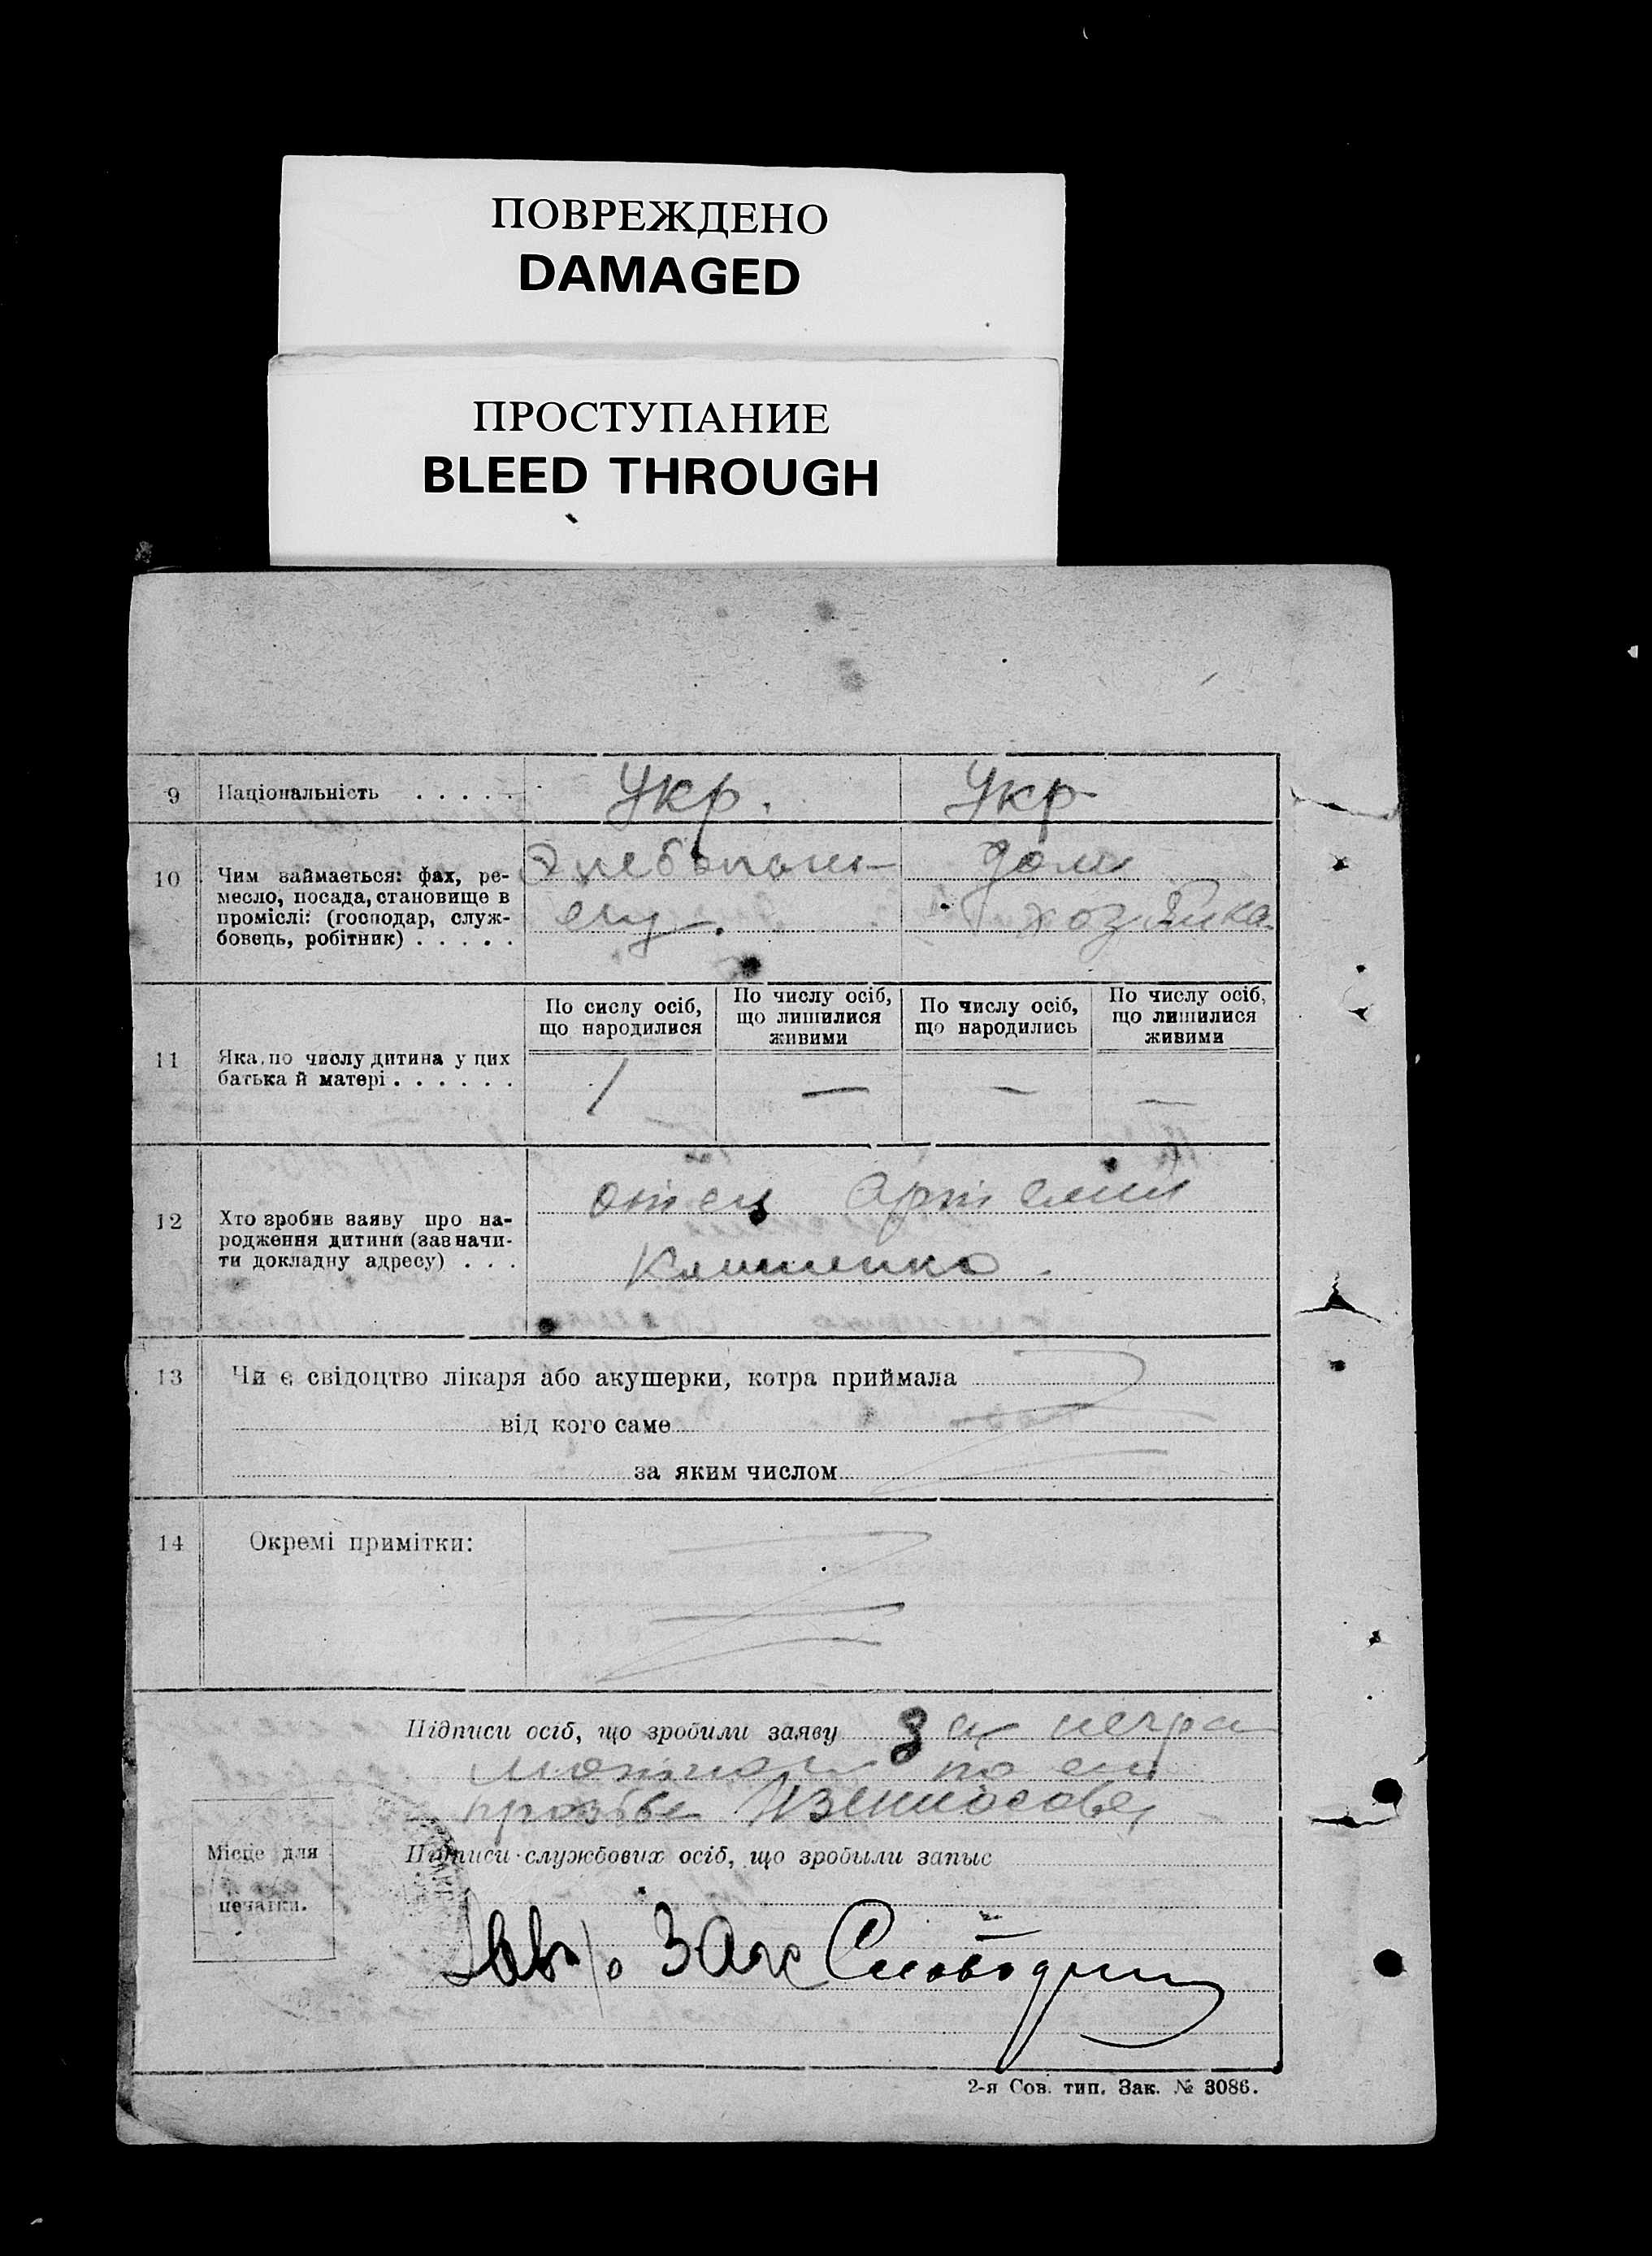 ПОВРЕЖДЕНО
DAMAGED
ПРОСТУПАНИЕ
BLEED THROUGH
9 Національність . . . . . Укр. Укр
10 Чим займається: фах, ре-
месло, посада, становище в
проміслі: (господар, служ-
бовець, робітник) . . . . .
дом
хозяйка
По сислу осіб,
що народилися
По числу осіб,
що лишилися
живими
По числу осіб,
що народились
По числу осіб,
що лишилися
живими
11 Яка по числу дитина у цих
батька й матері . . . . . .
1 — — —
12 Хто зробив заяву про на-
родження дитини (зазначи-
ти докладну адресу) . . .
отец Артемий
Клименко.
13 Чи є свідоцтво лікаря або акушерки, котра приймала
від кого саме
за яким числом
14 Окремі примітки:
Підписи осіб, що зробили заяву за негра
мотного по ег
прозбе
Підписи службових осіб, що зробыли запыс
Місце для
печатки.
2-я Сов. тип. Зак. № 3086.